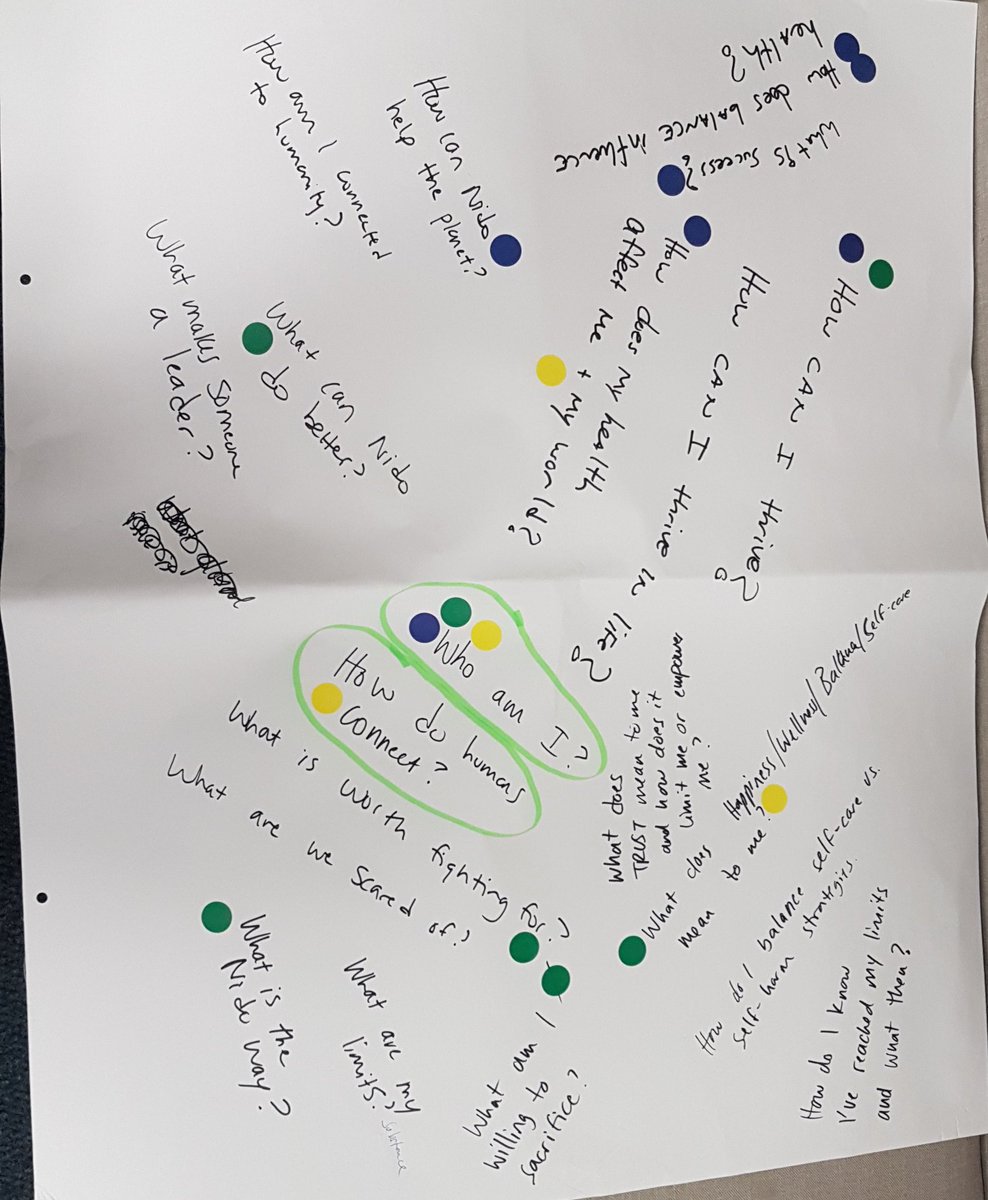 How does balance influence
health?
What is success?
How can I thrive?
How can I thrive in life?
How does my health
affect me + my world?
How can Nido
help the planet?
How am I connected
to humanity?
What can Nido
do better?
What makes someone
a leader?
Who am I?
How do humans
connect?
What is worth fighting for?
What are we scared of?
What is the
Nido way?
What are my
limits?
What am I
willing to
sacrifice?
What does
TRUST mean to me
and how does it
limit me or empower
me?
What does Happiness/Wellness/Balance/Self-care
mean to me?
How do I balance self-care vs.
self-harm strategies.
How do I know
I've reached my limits
and what then?